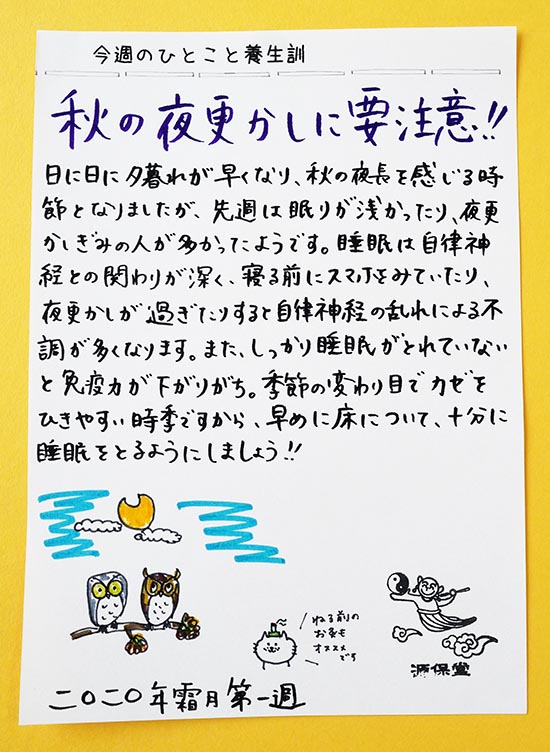 今週のひとこと養生訓
秋の夜更かしに要注意!!
日に日に夕暮れが早くなり、秋の夜長を感じる時
節となりましたが、先週は眠りが浅かったり、夜更
かしぎみの人が多かったようです。睡眠は自律神
経との関わりが深く、寝る前にスマホをみていたり、
夜更かしが過ぎたりすると自律神経の乱れによる不
調が多くなります。また、しっかり睡眠がとれていない
と免疫力が下がりがち。季節の変わり目でカゼを
ひきやすい時季ですから、早めに床について、十分に
睡眠をとるようにしましょう!!
ねる前の
お灸も
オススメ
です
源保堂
二〇二〇年霜月第一週